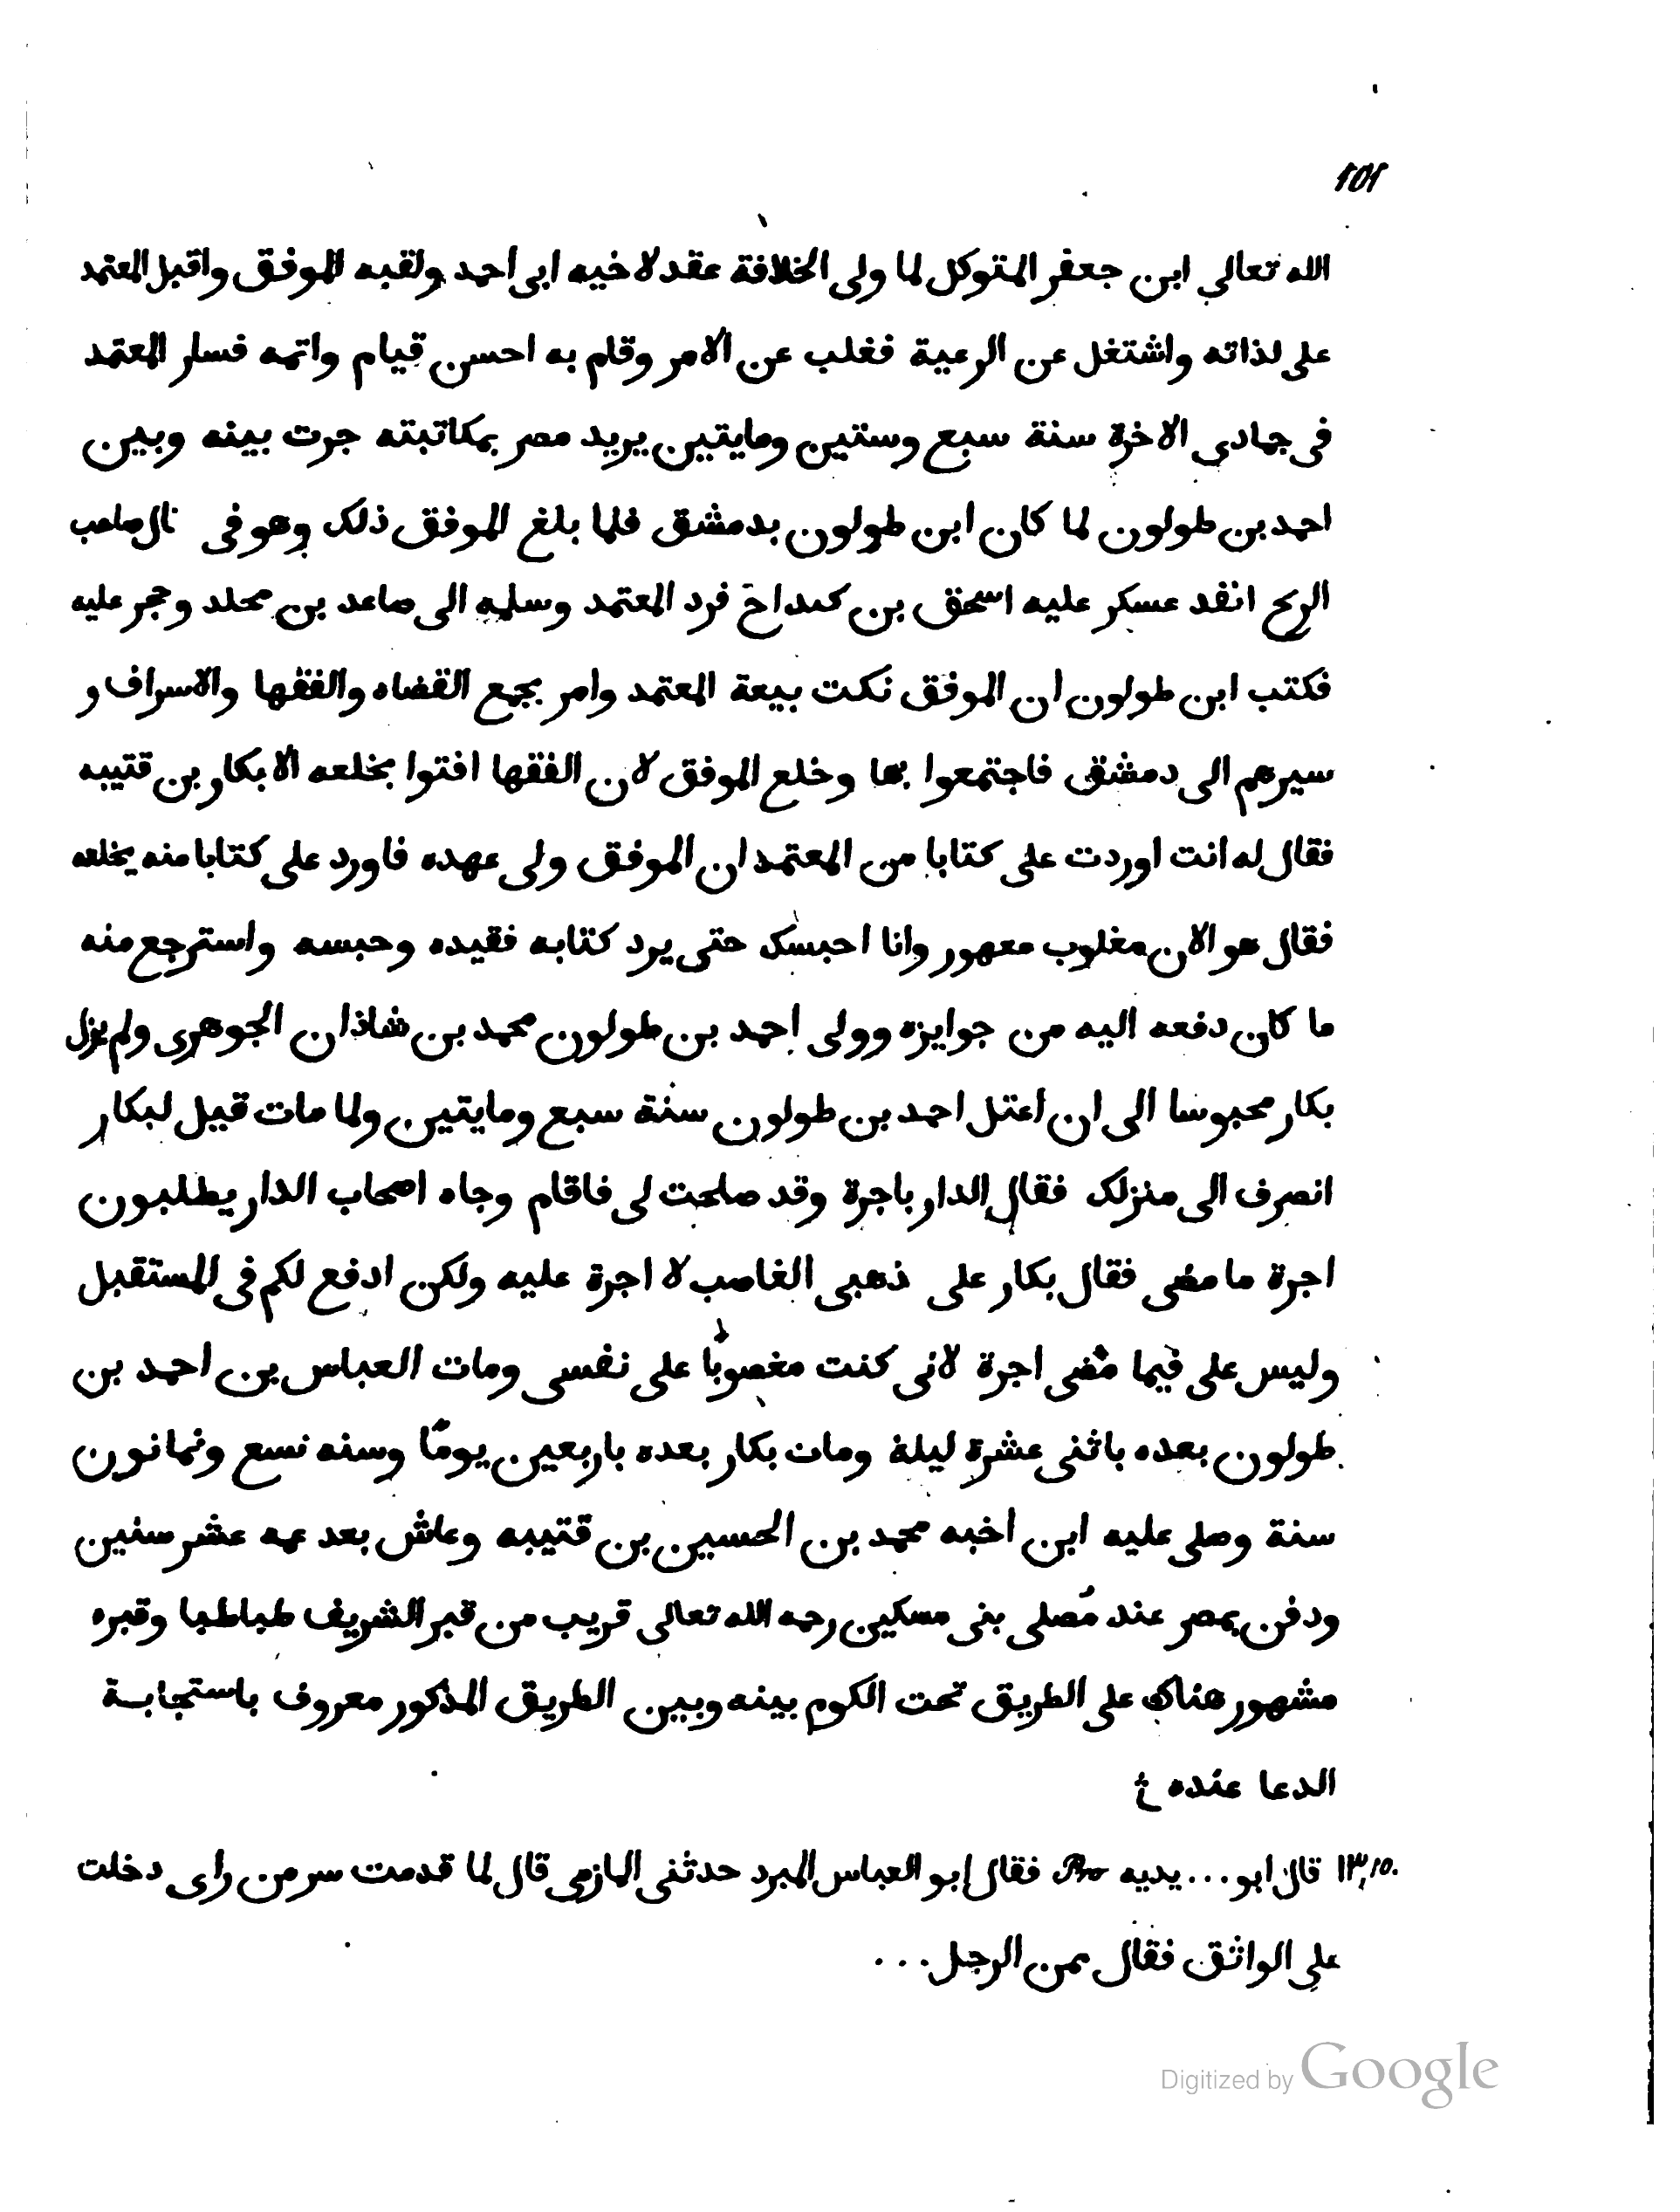 ١٥٢
الله تعالى ابن جعفر المتوكل لما ولى الخلافة عقد لاخيه ابى احمد ولقبه الموفق واقبل المعتمد
على لذاته واشتغل عن الرعية فغلب عن الامر وقام به احسن قيام واتمه فسار المعتمد
فى جمادى الاخرة سنة سبع وستين ومايتين يريد مصر بمكاتبته جرت بينه وبين
احمد بن طولون لما كان ابن طولون بدمشق فلما بلغ الموفق ذلك وهو فى صاحب
الريح انفد عسكر عليه اسحق بن كنداخ فرد المعتمد وسلمه الى صاعد بن محلد وحجر عليه
فكتب ابن طولون ان الموفق نكت بيعة المعتمد وامر بجمع القضاه والفقها والاسراف و
سيرهم الى دمشق فاجتمعوا بها وخلع الموفق لان الفقها افتوا بخلعه الا بكار بن قتيبه
فقال له انت اوردت على كتابا من المعتمد ان الموفق ولى عهده فاورد على كتابا منه يخلعه
فقال هو الان مغلوب معهور وانا احبسك حتى يرد كتابه فقيده وحبسه واسترجع منه
ما كان دفعه اليه من جوايزه وولى احمد بن طولون محمد بن شاذان الجوهرى ولم يزل
بكار محبوسا الى ان اعتل احمد بن طولون سنة سبع ومايتين ولما مات قبيل لبكار
انصرف الى منزلك فقال الدار باجرة وقد صلحت لى فاقام وجاه اصحاب الدار يطلبون
اجرة ما مضى فقال بكار على ذهبى الغاصب لا اجرة عليه ولكن ادفع لكم فى المستقبل
وليس على فيما مضى اجرة لانى كنت مغصوبًا على نفسى ومات العباس بن احمد بن
طولون بعده باثنى عشرة ليلة ومات بكار بعده باربعين يومًا وسنه تسع وثمانون
سنة وصلى عليه ابن اخبه محمد بن الحسين بن قتيبه وعاش بعد عمه عشر سنين
ودفن بمصر عند مُصلى بنى مسكين رحمه الله تعالى قريب من قبر الشريف طباطبا وقبره
مشهور هناك على الطريق تحت الكوم بينه وبين الطريق المذكور معروف باستجابة
الدعا عنده
١٣,١٥. قال ابو... يديه Pro فقال ابو العباس المبرد حدثنى المازمى قال لما قدمت سر من راى دخلت
على الواثق فقال ممن الرجل...
Digitized by Google